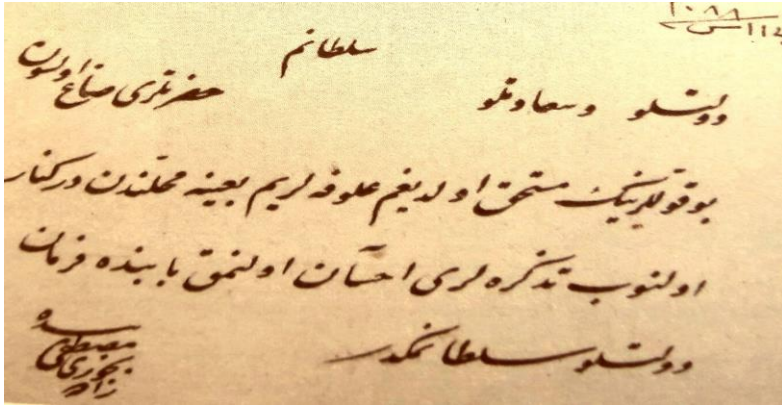 ١٠٨٨
سلطانم
دولتلو وسعادتلو حضرتلری صاغ اولسون
بو قوللرینك مستحق اولدیغم علوفه لریم بعینه محلندن دركنار
اولنوب تذكره لری احسان اولنمق بابنده فرمان
دولتلو سلطانمكدر
بنده
مصطفی